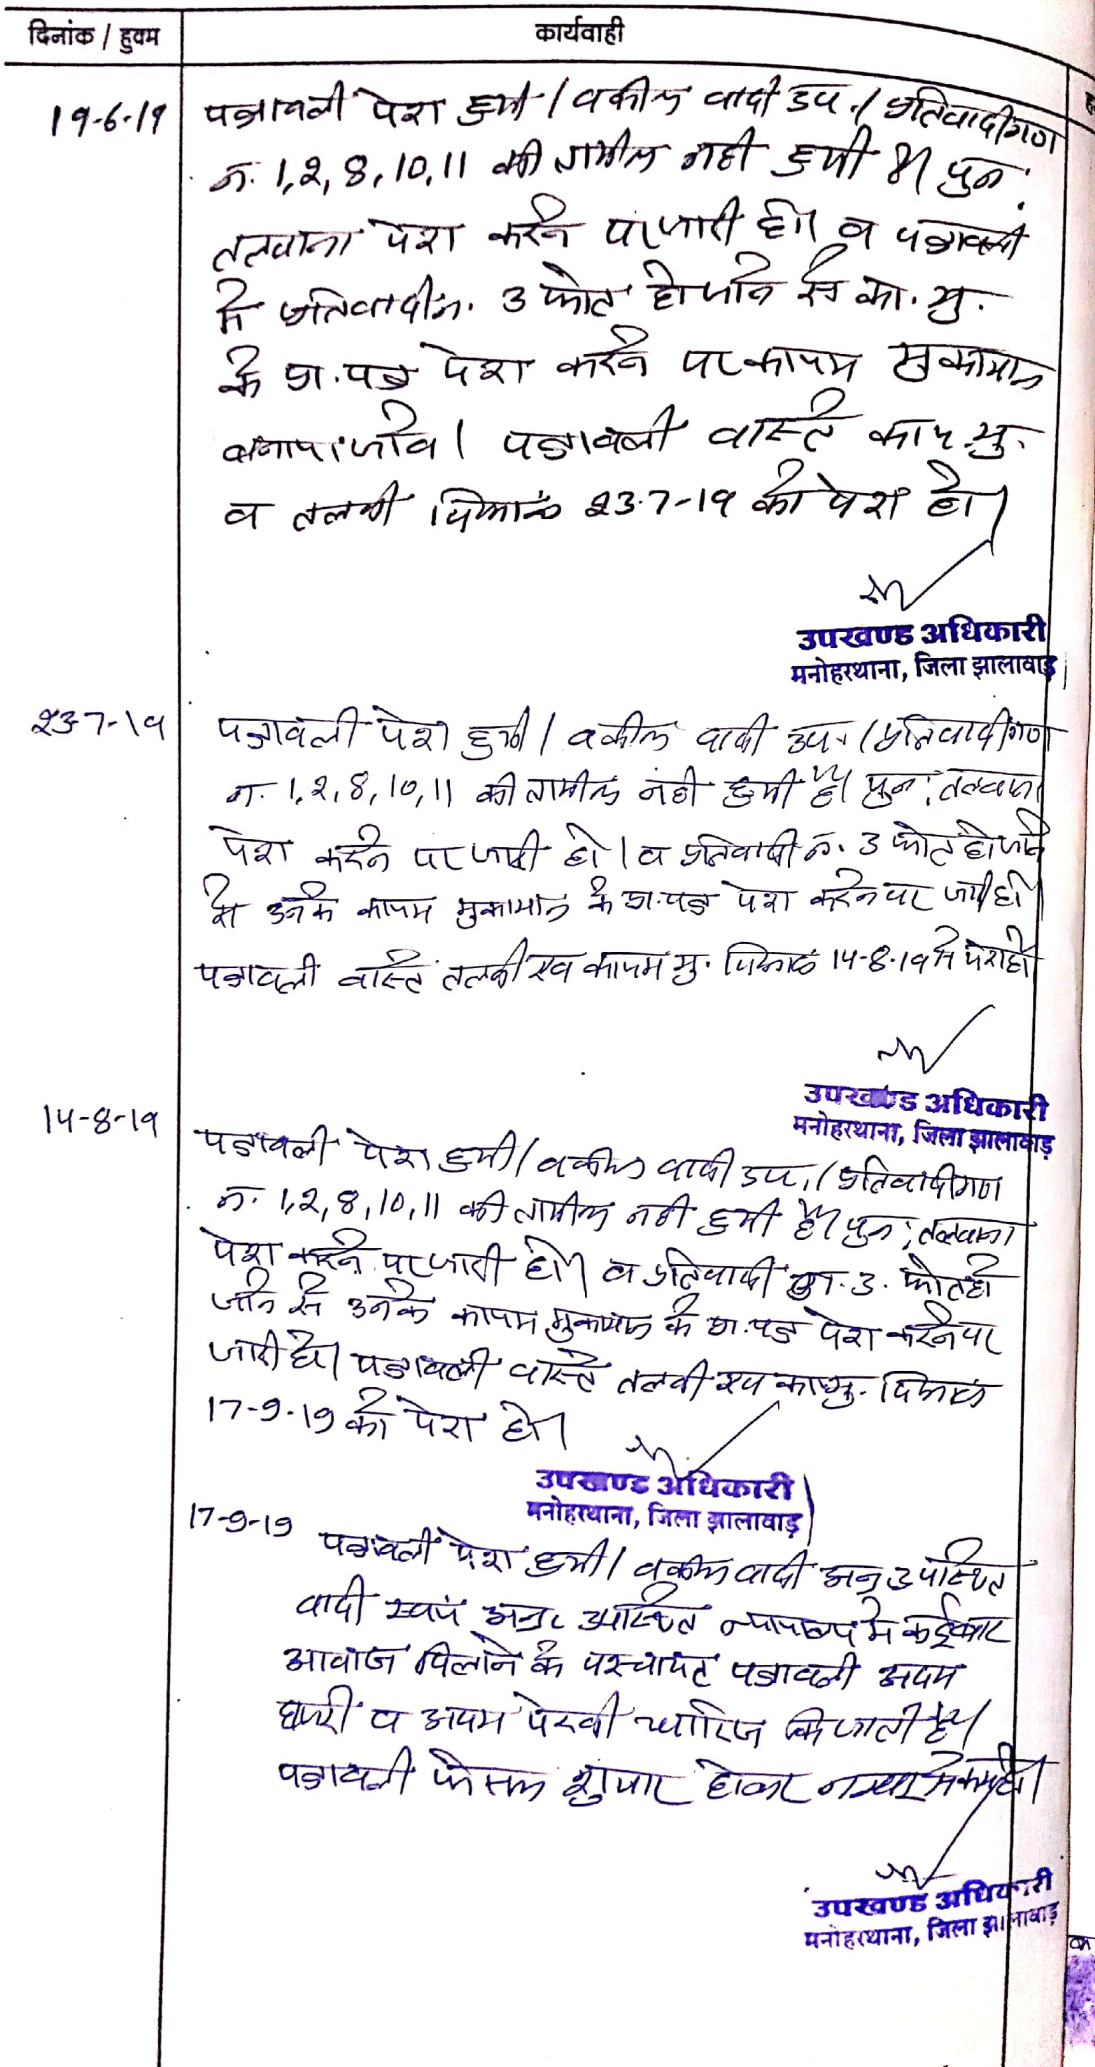 दिनांक / हुक्म
कार्यवाही
19-6-19
पत्रावली पेश हुयी। वकील वादी उप.। प्रतिवादीगण
न. 1,2,8,10,11 की तामील नही हुयी है। पुन:
तलवाना पेश करने पर जारी हो। व पत्रावली
मे प्रतिवादी न. 3 फोत हो जाने से का. मु.
के प्रा. पत्र पेश करने पर कायम मुकामान
बनाया जावे। पत्रावली वास्ते काय. मु.
व तलबी दिनांक 23-7-19 को पेश हो।
उपखण्ड अधिकारी
मनोहरथाना, जिला झालावाड़
23-7-19
पत्रावली पेश हुयी। वकील वादी उप.। प्रतिवादीगण
न. 1,2,8,10,11 की तामील नही हुयी है। पुन: तलवाना
पेश करने पर जारी हो। व प्रतिवादी न. 3 फोत हो जाने
से उनके कायम मुकामान के प्रा. पत्र पेश करने पर जारी हो।
पत्रावली वास्ते तलबी एव कायम मु. दिनांक 14-8-19 मे पेश हो
उपखण्ड अधिकारी
मनोहरथाना, जिला झालावाड़
14-8-19
पत्रावली पेश हुयी। वकील वादी उप.। प्रतिवादीगण
न. 1,2,8,10,11 की तामील नही हुयी है। पुन: तलवाना
पेश करने पर जारी हो। व प्रतिवादी न. 3. फोत हो
जाने से उनके कायम मुकामान के प्रा. पत्र पेश करने पर
जारी हो। पत्रावली वास्ते तलबी एव का. मु. दिनांक
17-9-19 को पेश हो।
उपखण्ड अधिकारी
मनोहरथाना, जिला झालावाड़
17-9-19
पत्रावली पेश हुयी। वकील वादी अनुउपस्थित
वादी स्वयं अनु. उपस्थित न्यायालय मे कई बार
आवाज दिलाने के पश्चायत पत्रावली अदम
हाजरी व अदम पेरवी खारिज कि जाती है।
पत्रावली फेसल शुमार होकर नम्बर से कम हो।
उपखण्ड अधिकारी
मनोहरथाना, जिला झालावाड़